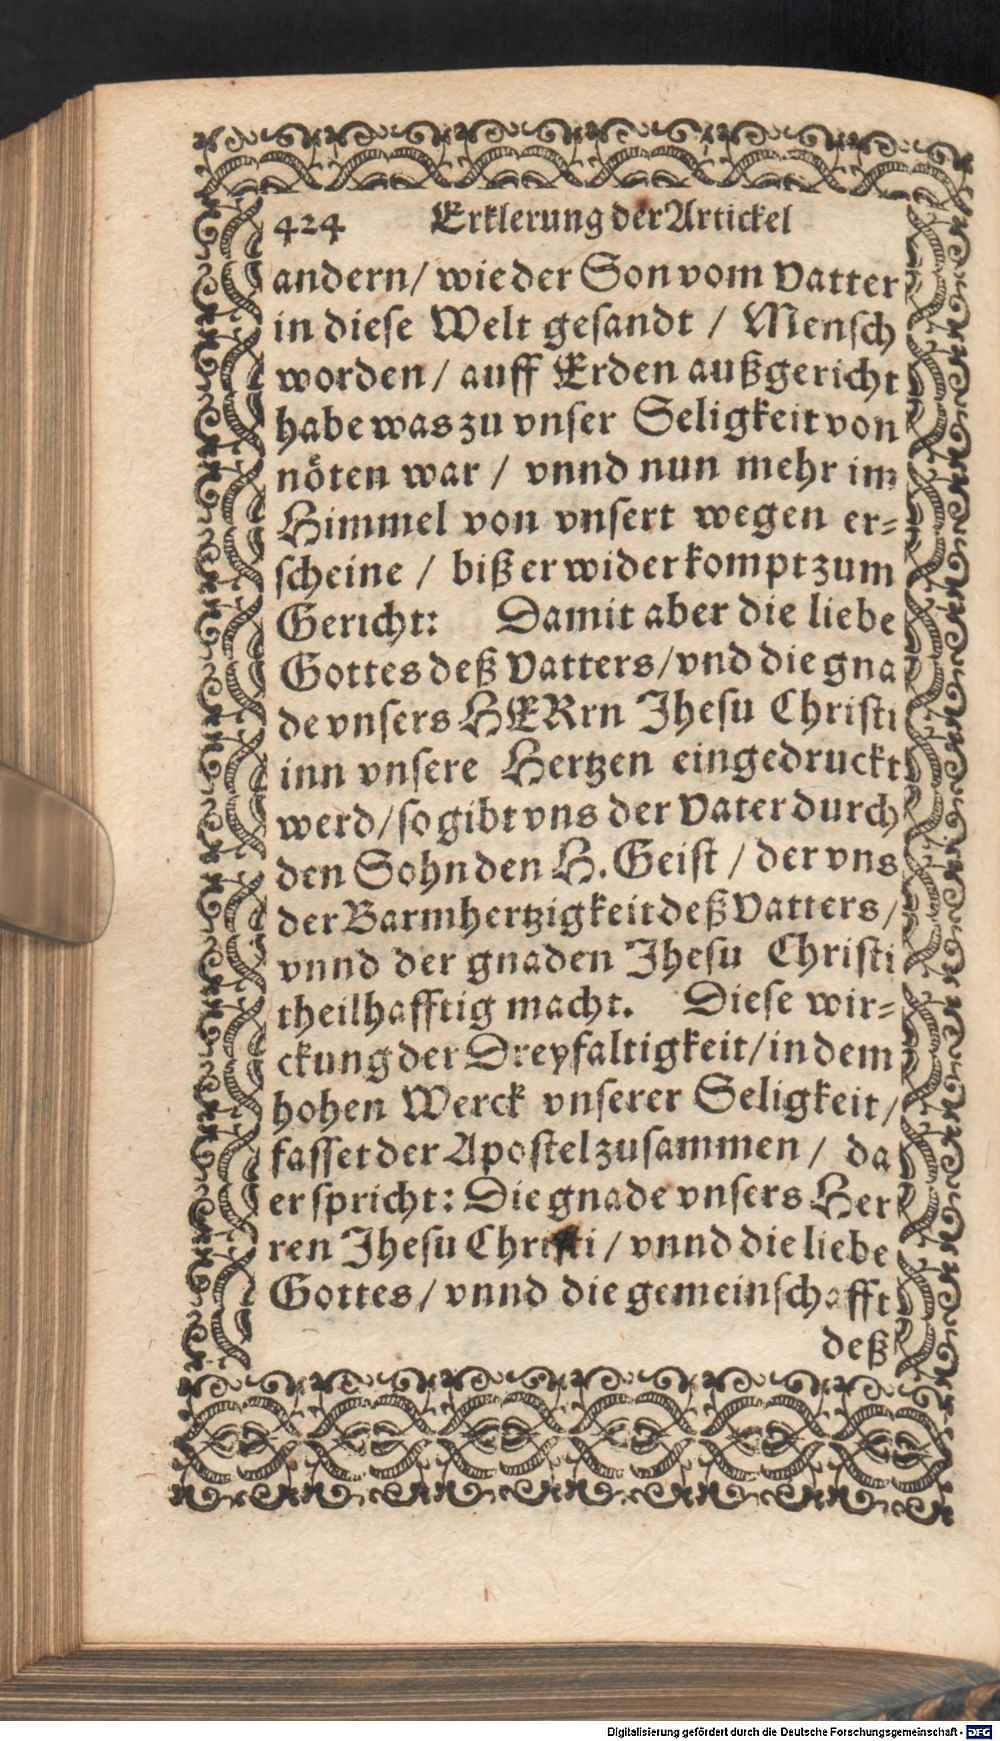 424 Erklerung der Artickel
andern/ wie der Son vom Vatter
in diese Welt gesandt / Mensch
worden/ auff Erden außgericht
habe was zu vnser Seligkeit von
nöten war / vnnd nun mehr im
Himmel von vnsert wegen er=
scheine / biß er wider kompt zum
Gericht: Damit aber die liebe
Gottes deß Vatters/ vnd die gna
de vnsers HERrn Jhesu Christi
inn vnsere Hertzen eingedruckt
werd/ so gibt vns der Vater durch
den Sohn den H. Geist / der vns
der Barmhertzigkeit deß Vatters/
vnnd der gnaden Jhesu Christi
theilhafftig macht. Diese wir=
ckung der Dreyfaltigkeit/ in dem
hohen Werck vnserer Seligkeit/
fasset der Apostel zusammen / da
er spricht: Die gnade vnsers Her
ren Jhesu Christi / vnnd die liebe
Gottes/ vnnd die gemeinschafft
deß
Digitalisierung gefördert durch die Deutsche Forschungsgemeinschaft - DFG